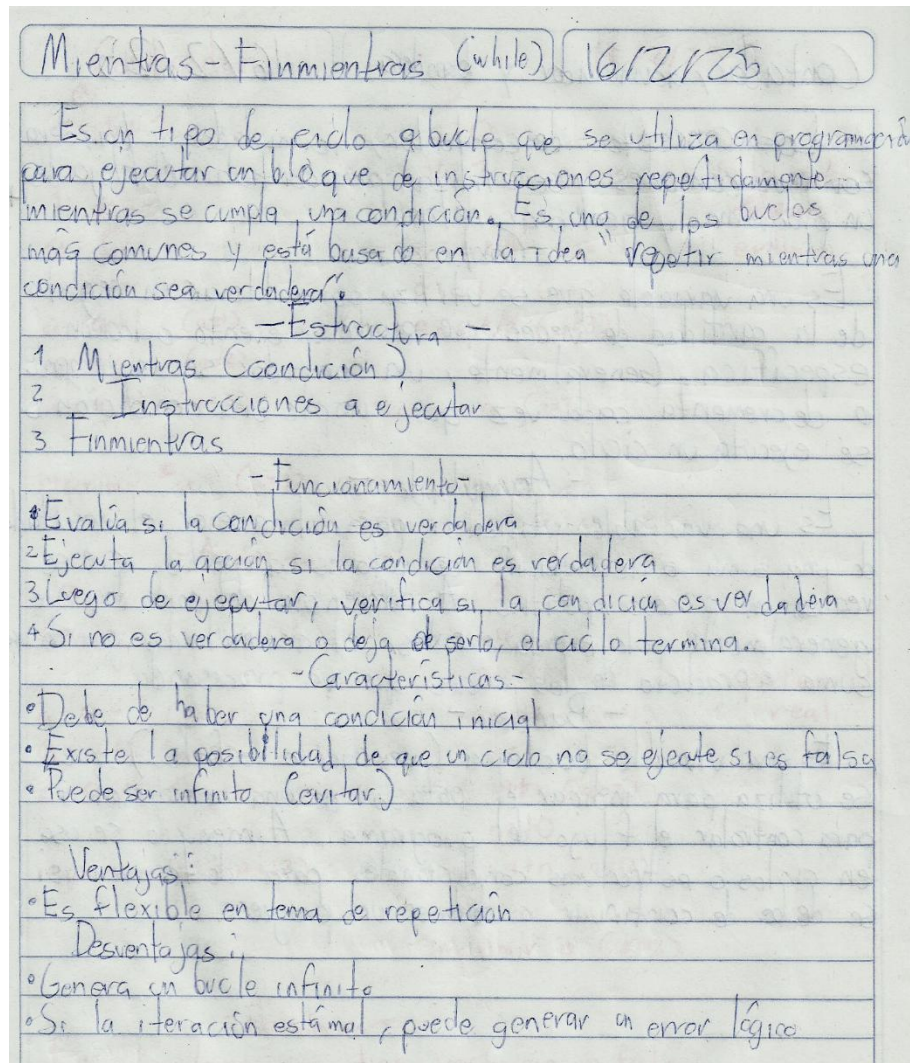 Mientras - Finmientras (while) 16/2/25
Es un tipo de ciclo o bucle que se utiliza en programación
para ejecutar un bloque de instrucciones repetidamente
mientras se cumpla una condición. Es uno de los bucles
más comunes y está basado en la idea "repetir mientras una
condición sea verdadera".
- Estructura -
1 Mientras (condición)
2 Instrucciones a ejecutar
3 Finmientras
- Funcionamiento -
1 Evalúa si la condición es verdadera
2 Ejecuta la acción si la condición es verdadera
3 Luego de ejecutar, verifica si la condición es verdadera
4 Si no es verdadera o deja de serlo, el ciclo termina.
- Características -
• Debe de haber una condición inicial
• Existe la posibilidad de que un ciclo no se ejecute si es falsa
• Puede ser infinito (evitar)
Ventajas:
• Es flexible en tema de repetición
Desventajas:
• Genera un bucle infinito
• Si la iteración está mal, puede generar un error lógico